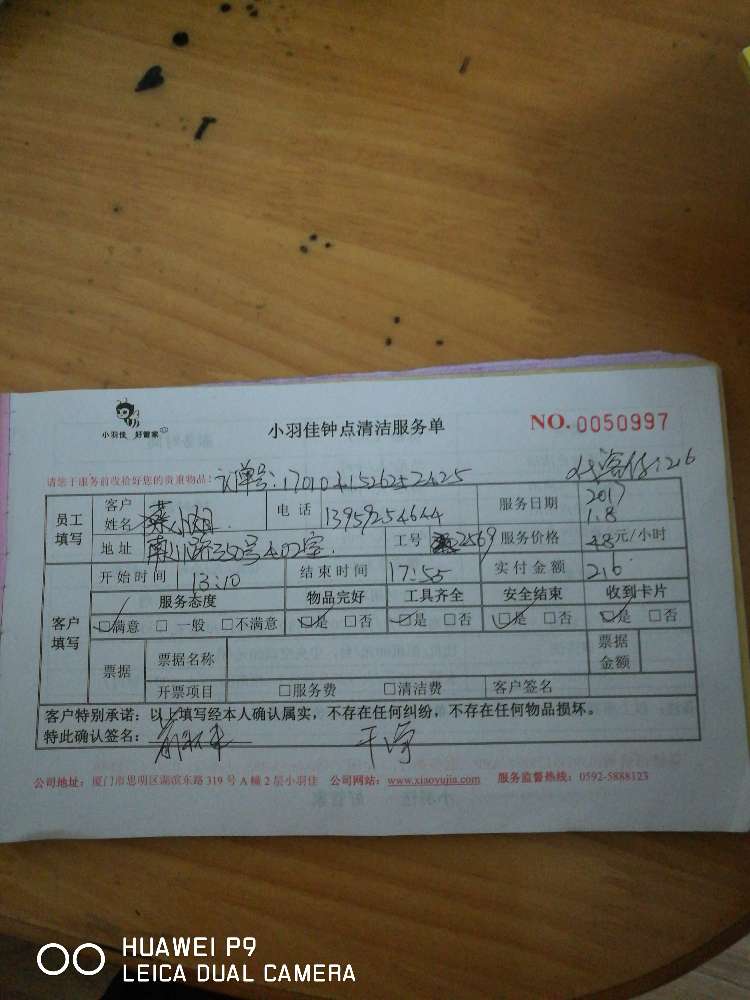 小羽佳 好管家
小羽佳钟点清洁服务单
NO. 0050997
请您于服务前收拾好您的贵重物品！
订单号:
员工填写 客户姓名 蔡小姐 电话 13959254644 服务日期 2017 1.8
地址 工号 2569 服务价格 48元/小时
客户填写 开始时间 13:10 结束时间 17:55 实付金额 216
服务态度 物品完好 工具齐全 安全结束 收到卡片
□满意 □一般 □不满意 □是 □否 □是 □否 □是 □否 □是 □否
票据 票据名称 票据金额
开票项目 □服务费 □清洁费 客户签名
客户特别承诺：以上填写经本人确认属实，不存在任何纠纷，不存在任何物品损坏。
特此确认签名：
公司地址：厦门市思明区湖滨东路319号A幢2层小羽佳 公司网站：www.xiaoyujia.com 服务监督热线：0592-5888123
HUAWEI P9
LEICA DUAL CAMERA